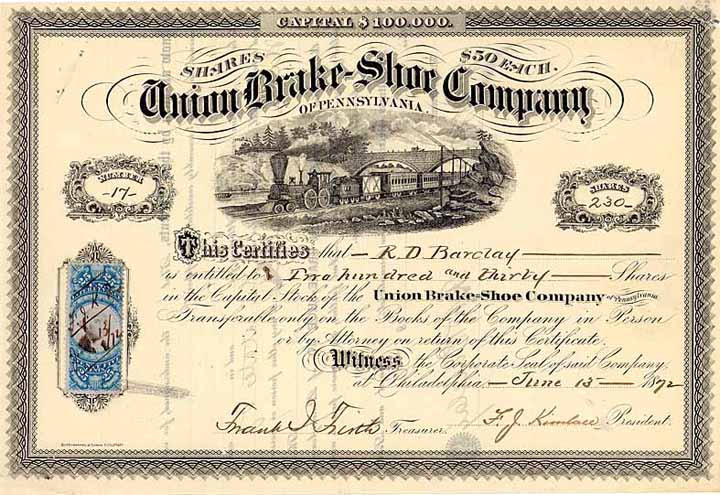 CAPITAL $100.000.
SHARES $50 EACH.
Union Brake-Shoe Company
OF PENNSYLVANIA.
NUMBER
-17-
SHARES
230-
This Certifies that R D Barclay
is entitled to Two hundred and thirty Shares
in the Capital Stock of the Union Brake-Shoe Company of Pennsylvania
Transferable only on the Books of the Company in Person
or by Attorney on return of this Certificate.
Witness the Corporate Seal of said Company.
at Philadelphia. June 15 1872
Frank J Firth Treasurer. F. J. Kimball President.